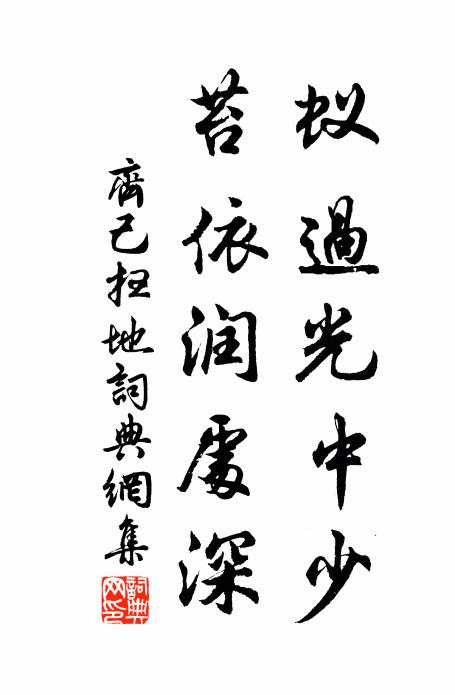 蚁過光中少
苔依润處深
齊己扫地詞典網集
詞典网印